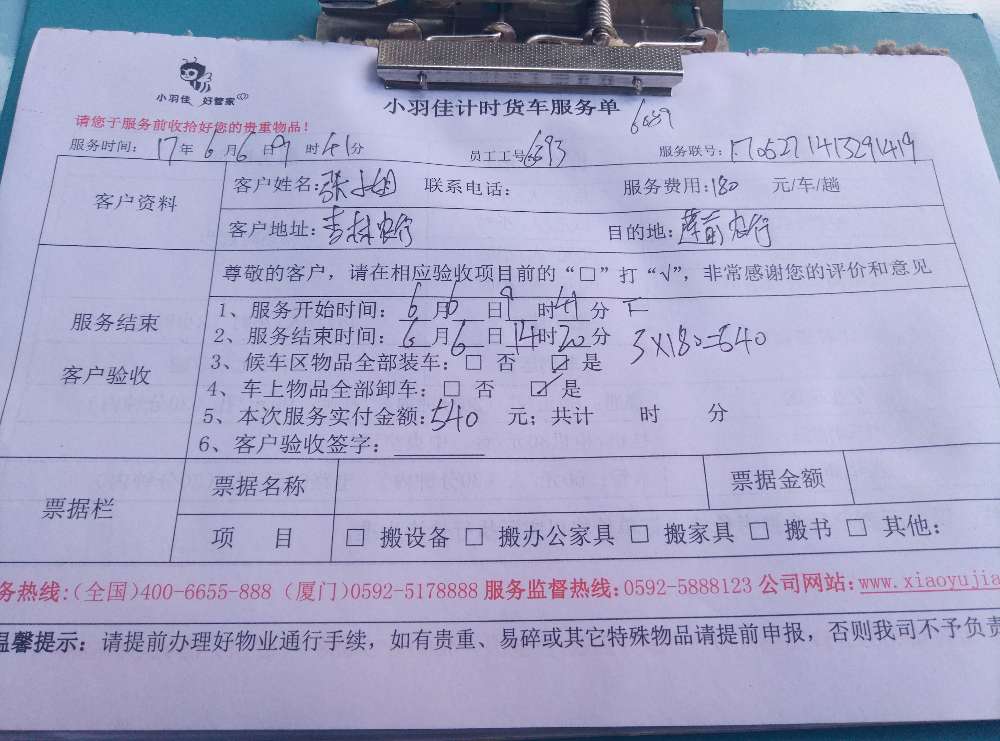 小羽佳 好管家
小羽佳计时货车服务单
6089
请您于服务前收拾好您的贵重物品！
服务时间：17年6月6日9时41分 员工工号6693 服务联号：1705271413291419
客户资料
客户姓名：张小姐 联系电话： 服务费用：180 元/车/趟
客户地址：吉林农行 目的地：莲前农行
服务结束
客户验收
尊敬的客户，请在相应验收项目前的“□”打“√”，非常感谢您的评价和意见
1、服务开始时间：6月6日9时41分
2、服务结束时间：6月6日14时20分
3×180=540
3、候车区物品全部装车：□ 否 ☑ 是
4、车上物品全部卸车：□ 否 ☑ 是
5、本次服务实付金额：540 元；共计 时 分
6、客户验收签字：
票据栏
票据名称 票据金额
项 目 □ 搬设备 □ 搬办公家具 □ 搬家具 □ 搬书 □ 其他：
务热线：(全国)400-6655-888 (厦门)0592-5178888 服务监督热线：0592-5888123 公司网站：www.xiaoyujia
温馨提示：请提前办理好物业通行手续，如有贵重、易碎或其它特殊物品请提前申报，否则我司不予负责